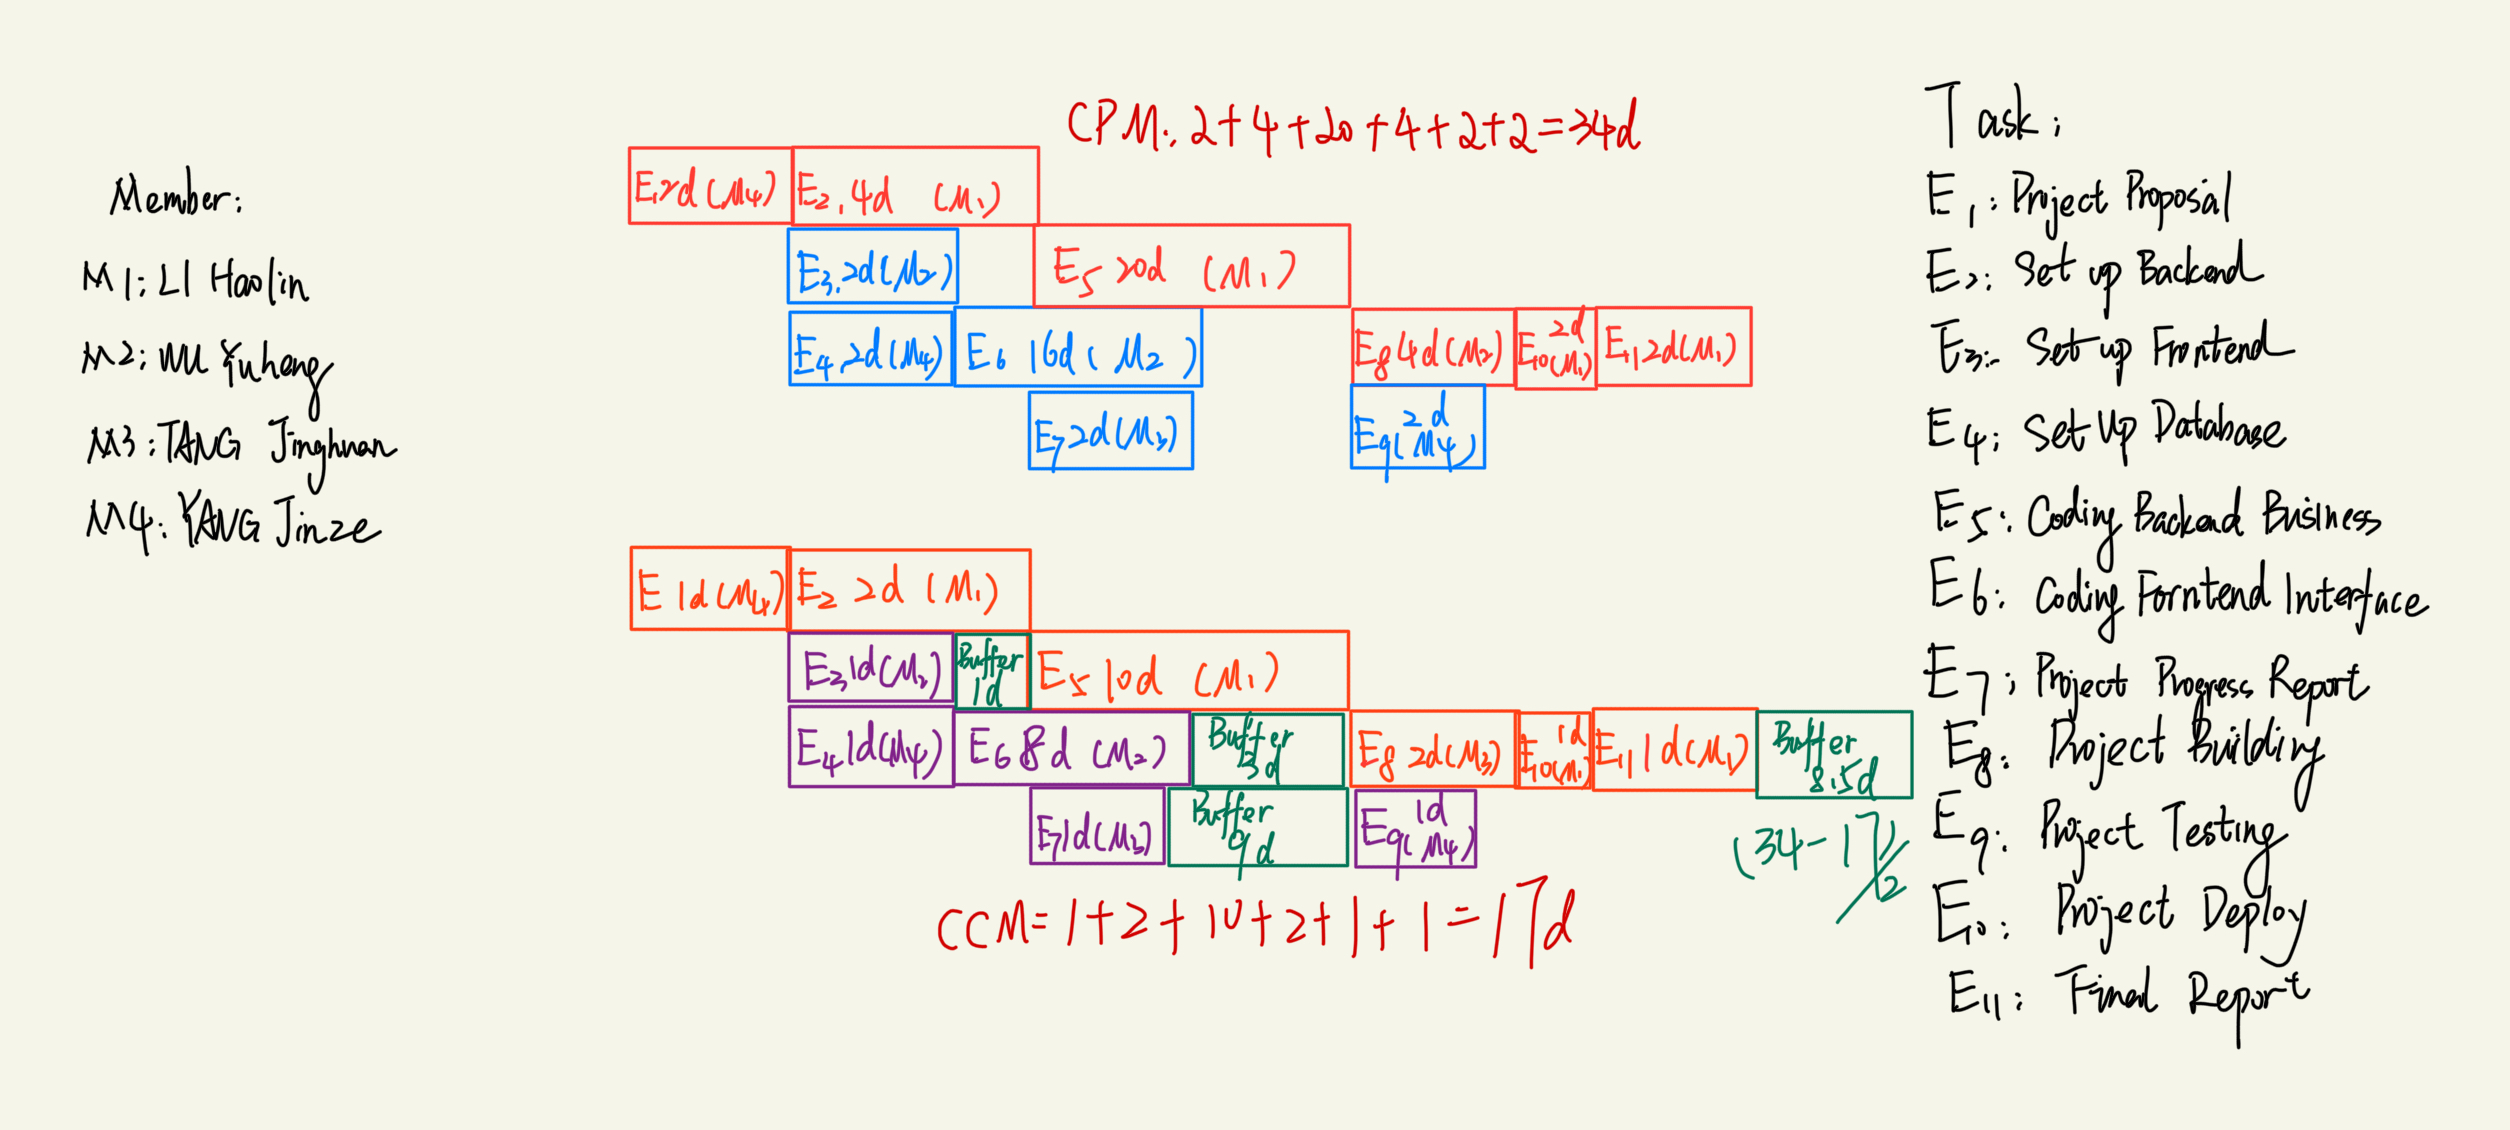 Member:
M1: LI Haolin
M2: WU Yuheng
M3: TANG Jinghuan
M4: YANG Jinze
CPM: 2+4+20+4+2+2=34d
E1 2d (M4)
E2, 4d (M1)
E3, 2d (M2)
E5 20d (M1)
E4, 2d (M4)
E6 16d (M2)
E8 4d (M3)
E10 2d (M1)
E11 2d (M1)
E7 2d (M3)
E9 2d (M4)
E 1d (M4)
E2 2d (M1)
E3 1d (M2)
Buffer
1d
E5 10d (M1)
E4 1d (M4)
E6 8d (M2)
Buffer
3d
E8 2d (M3)
E10 1d (M1)
E11 1d (M1)
Buffer
8.5d
E7 1d (M3)
Buffer
9d
E9 1d (M4)
(34-17)/2
CCM=1+2+10+2+1+1=17d
Task:
E1: Project Proposal
E2: Set up Backend
E3: Set up Frontend
E4: Set Up Database
E5: Coding Backend Business
E6: Coding Forntend Interface
E7: Project Progress Report
E8: Project Building
E9: Project Testing
E10: Project Deploy
E11: Final Report